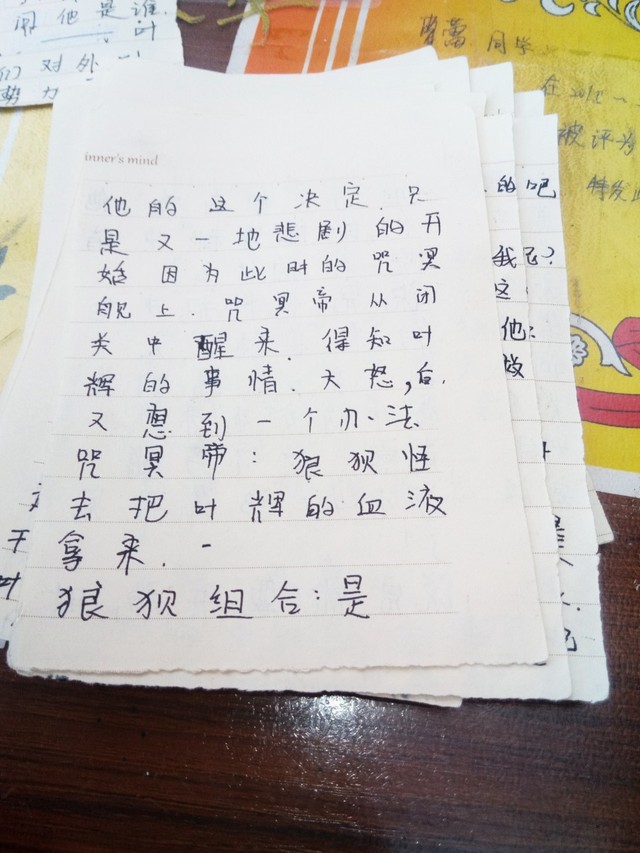 闻他是谁.
叶
们对外
势力
同学
在201
被评为
特发此
inner's mind
他的这个决定.只
是又一地悲剧的开
始因为此时的咒冥
舰上.咒冥帝从闭
关中醒来.得知叶
辉的事情.大怒,后.
又想到一个办法
咒冥帝:狼狈怪
去把叶辉的血液
拿来.
狼狈组合:是
的吧
我
这
他
做